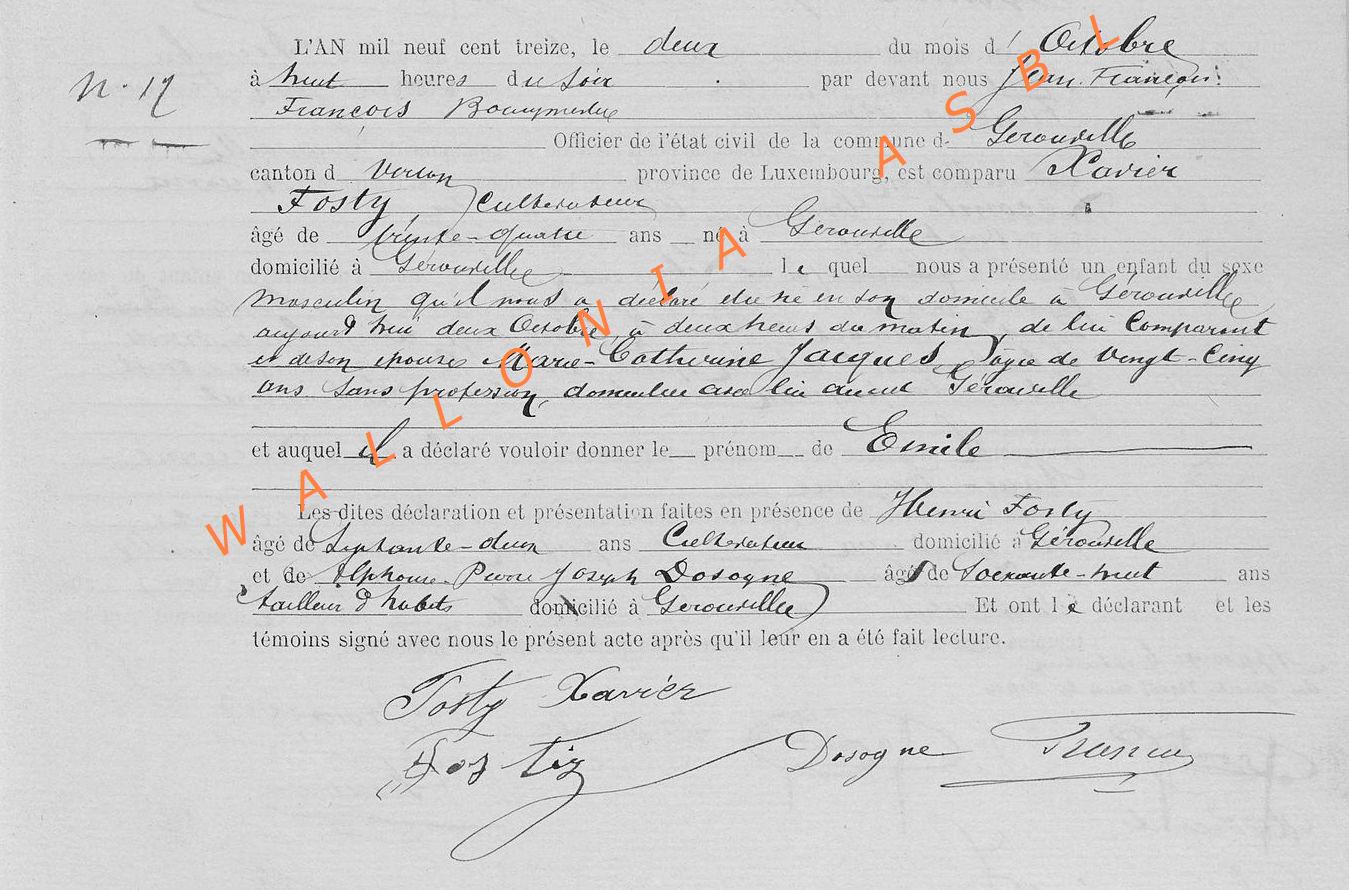 L'AN mil neuf cent treize, le deux du mois d' Octobre
N. 17
à huit heures du Soir par devant nous Jean. François
François
Officier de l'état civil de la commune d Gérouville
canton d Virton province de Luxembourg, est comparu Xavier
Fosty Cultivateur
âgé de Vingt-quatre ans né à Gérouville
domicilié à Gérouville le quel nous a présenté un enfant du sexe
masculin qu'il nous a déclaré être né en son domicile à Gérouville
aujourd'hui deux Octobre, à deux heures du matin, de lui Comparant
et de son épouse Marie-Catherine Jacques âgée de Vingt-Cinq
ans Sans profession, domiciliée avec lui audit Gérouville
et auquel il a déclaré vouloir donner le prénom de Emile
Les dites déclaration et présentation faites en présence de Henri Fosty
âgé de Septante-deux ans Cultivateur domicilié à Gérouville
et de Alphonse Pierre Joseph Dosogne âgé de Soixante-huit ans
tailleur d'habits domicilié à Gérouville Et ont le déclarant et les
témoins signé avec nous le présent acte après qu'il leur en a été fait lecture.
Fosty Xavier
Dosogne
WALLONIA ASBL